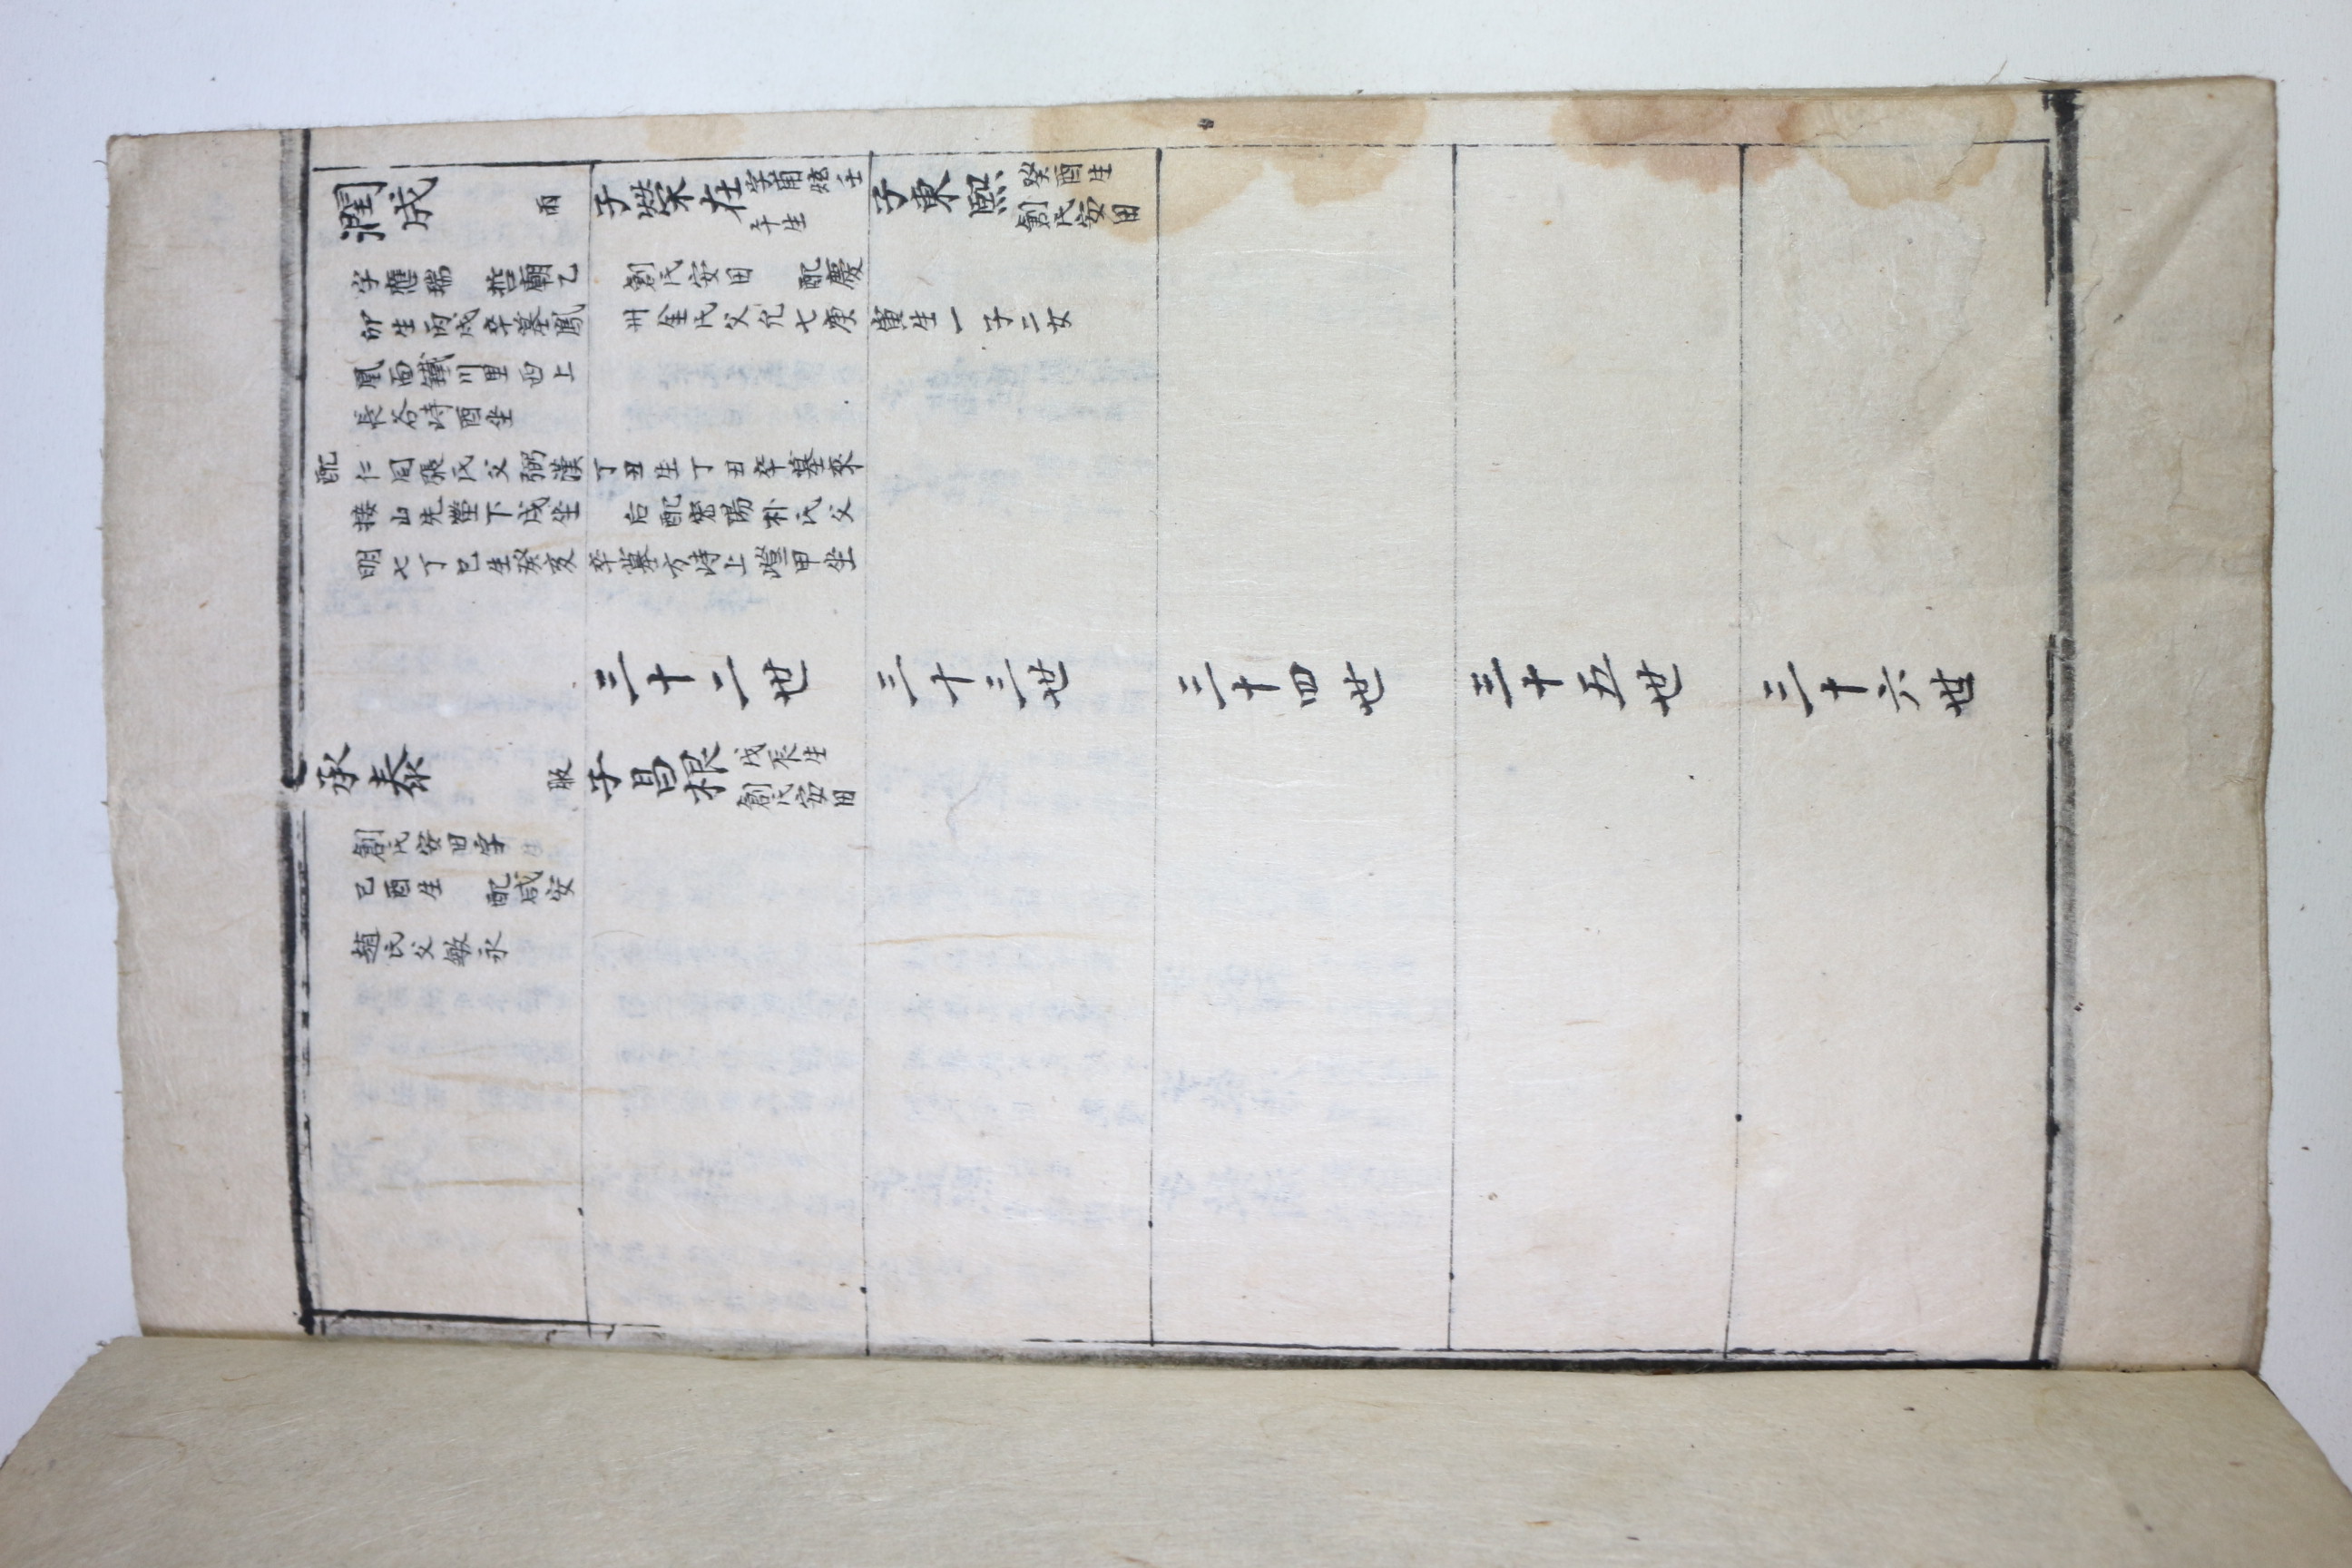 潤成
雨
字應瑞 哲廟乙
卯生丙戌卒墓鳳
凰面鐵川里西上
長谷峙酉坐
配仁同張氏父弼漢
丁丑生丁丑卒墓來
接山先塋下戌坐
后配密陽朴氏父
明七丁巳生癸亥
卒墓方峙上嶝甲坐
子榮在
字甫炫壬
午生
創氏安田 配慶
州金氏父允七庚
寅生一子二女
子東熙
癸酉生
創氏安田
三十二世
三十三世
三十四世
三十五世
三十六世
承泰
服
創氏安田字
己酉生 配咸安
趙氏父敏永
子昌根
戊辰生
創氏安田